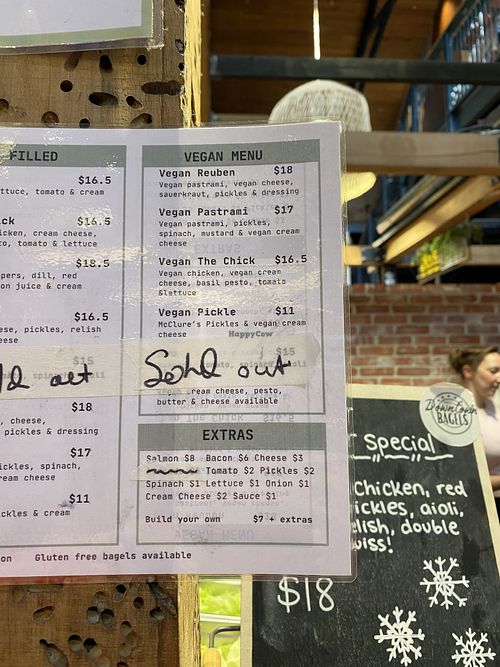 FILLED
$16.5
ttuce, tomato & cream
ck $16.5
hicken, cream cheese,
to, tomato & lettuce
$18.5
pers, dill, red
on juice & cream
$16.5
ese, pickles, relish
eese
$15
$18
, cheese,
pickles & dressing
$17
ickles, spinach,
eam cheese
$11
ckles & cream
VEGAN MENU
Vegan Reuben $18
Vegan pastrami, vegan cheese,
sauerkraut, pickles & dressing
Vegan Pastrami $17
Vegan pastrami, pickles,
spinach, mustard & vegan cream
cheese
Vegan The Chick $16.5
Vegan chicken, vegan cream
cheese, basil pesto, tomato
&lettuce
Vegan Pickle $11
McClure's Pickles & vegan cream
cheese
HappyCow
$15
Sold out
cream cheese, pesto,
butter & cheese available
EXTRAS
Salmon $8 Bacon $6 Cheese $3
Tomato $2 Pickles $2
Spinach $1 Lettuce $1 Onion $1
Cream Cheese $2 Sauce $1
Build your own $7 + extras
Gluten free bagels available
Downtown
BAGELS
Special
Chicken, red
pickles, aioli,
relish, double
wiss!
$18